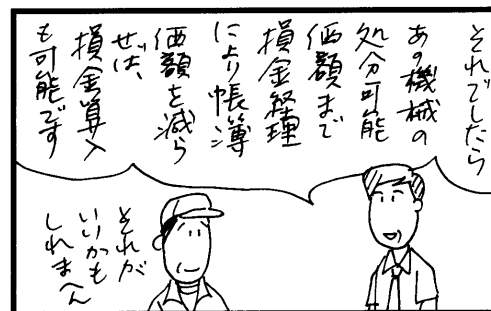 それでしたら
あの機械の
処分可能
価額まで
損金経理
により帳簿
価額を減ら
せば、
損金算入
も可能です
それが
いいかも
しれまへん